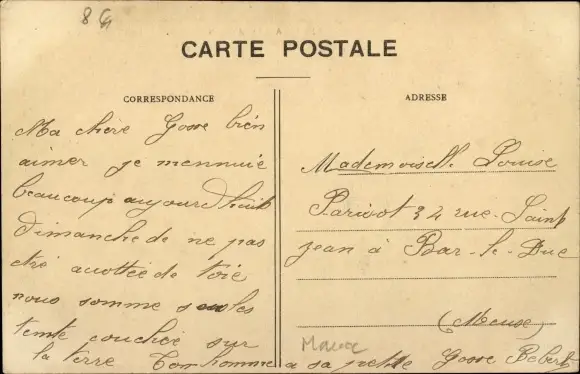 8
CARTE POSTALE
CORRESPONDANCE
Ma chère Gosse bien
aimer je mennuie
beaucoup aujourdhuit
dimanche de ne pas
etre acottée de toie
nous somme sous les
tente couchée sur
la terre Ton homme a sa petite Gosse Bebert
ADRESSE
Mademoiselle Louise
Parivot 34 rue Saint
jean à Bar-le-Duc
(Meuse)
Maroc